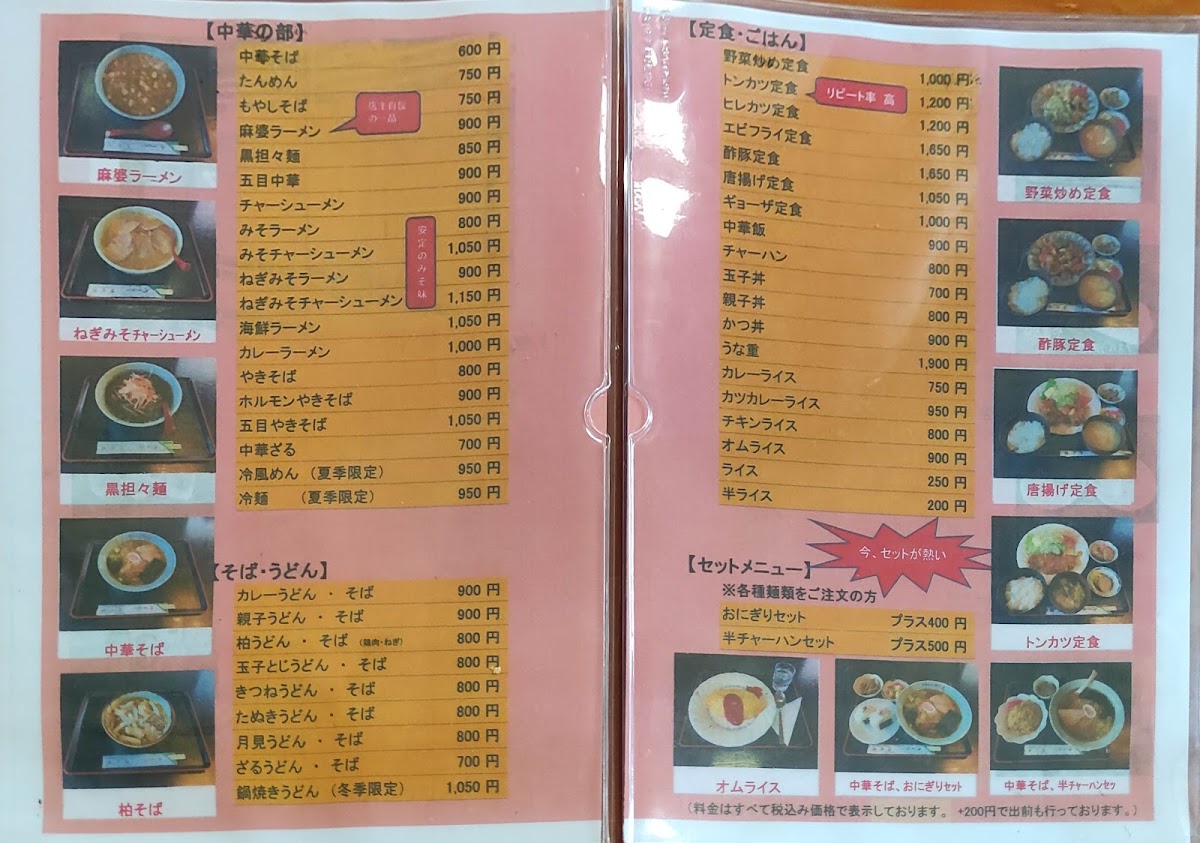 【中華の部】
中華そば 600 円
たんめん 750 円
もやしそば 750 円
店主自慢の一品
麻婆ラーメン 900 円
黒担々麺 850 円
五目中華 900 円
チャーシューメン 900 円
みそラーメン 800 円
安定のみそ味
みそチャーシューメン 1,050 円
ねぎみそラーメン 900 円
ねぎみそチャーシューメン 1,150 円
海鮮ラーメン 1,050 円
カレーラーメン 1,000 円
やきそば 800 円
ホルモンやきそば 900 円
五目やきそば 1,050 円
中華ざる 700 円
冷風めん （夏季限定） 950 円
冷麺 （夏季限定） 950 円
【そば・うどん】
カレーうどん ・ そば 900 円
親子うどん ・ そば 900 円
柏うどん ・ そば （鶏肉・ねぎ） 800 円
玉子とじうどん ・ そば 800 円
きつねうどん ・ そば 800 円
たぬきうどん ・ そば 800 円
月見うどん ・ そば 800 円
ざるうどん ・ そば 700 円
鍋焼きうどん （冬季限定） 1,050 円
麻婆ラーメン
ねぎみそチャーシューメン
黒担々麺
中華そば
柏そば
【定食・ごはん】
野菜炒め定食 1,000 円
トンカツ定食 1,200 円
リピート率 高
ヒレカツ定食 1,200 円
エビフライ定食 1,650 円
酢豚定食 1,650 円
唐揚げ定食 1,050 円
ギョーザ定食 1,000 円
中華飯 900 円
チャーハン 800 円
玉子丼 700 円
親子丼 800 円
かつ丼 900 円
うな重 1,900 円
カレーライス 750 円
カツカレーライス 950 円
チキンライス 800 円
オムライス 900 円
ライス 250 円
半ライス 200 円
今、セットが熱い
【セットメニュー】
※各種麺類をご注文の方
おにぎりセット プラス400 円
半チャーハンセット プラス500 円
野菜炒め定食
酢豚定食
唐揚げ定食
トンカツ定食
オムライス
中華そば、おにぎりセット
中華そば、半チャーハンセッ
（料金はすべて税込み価格で表示しております。 +200円で出前も行っております。）